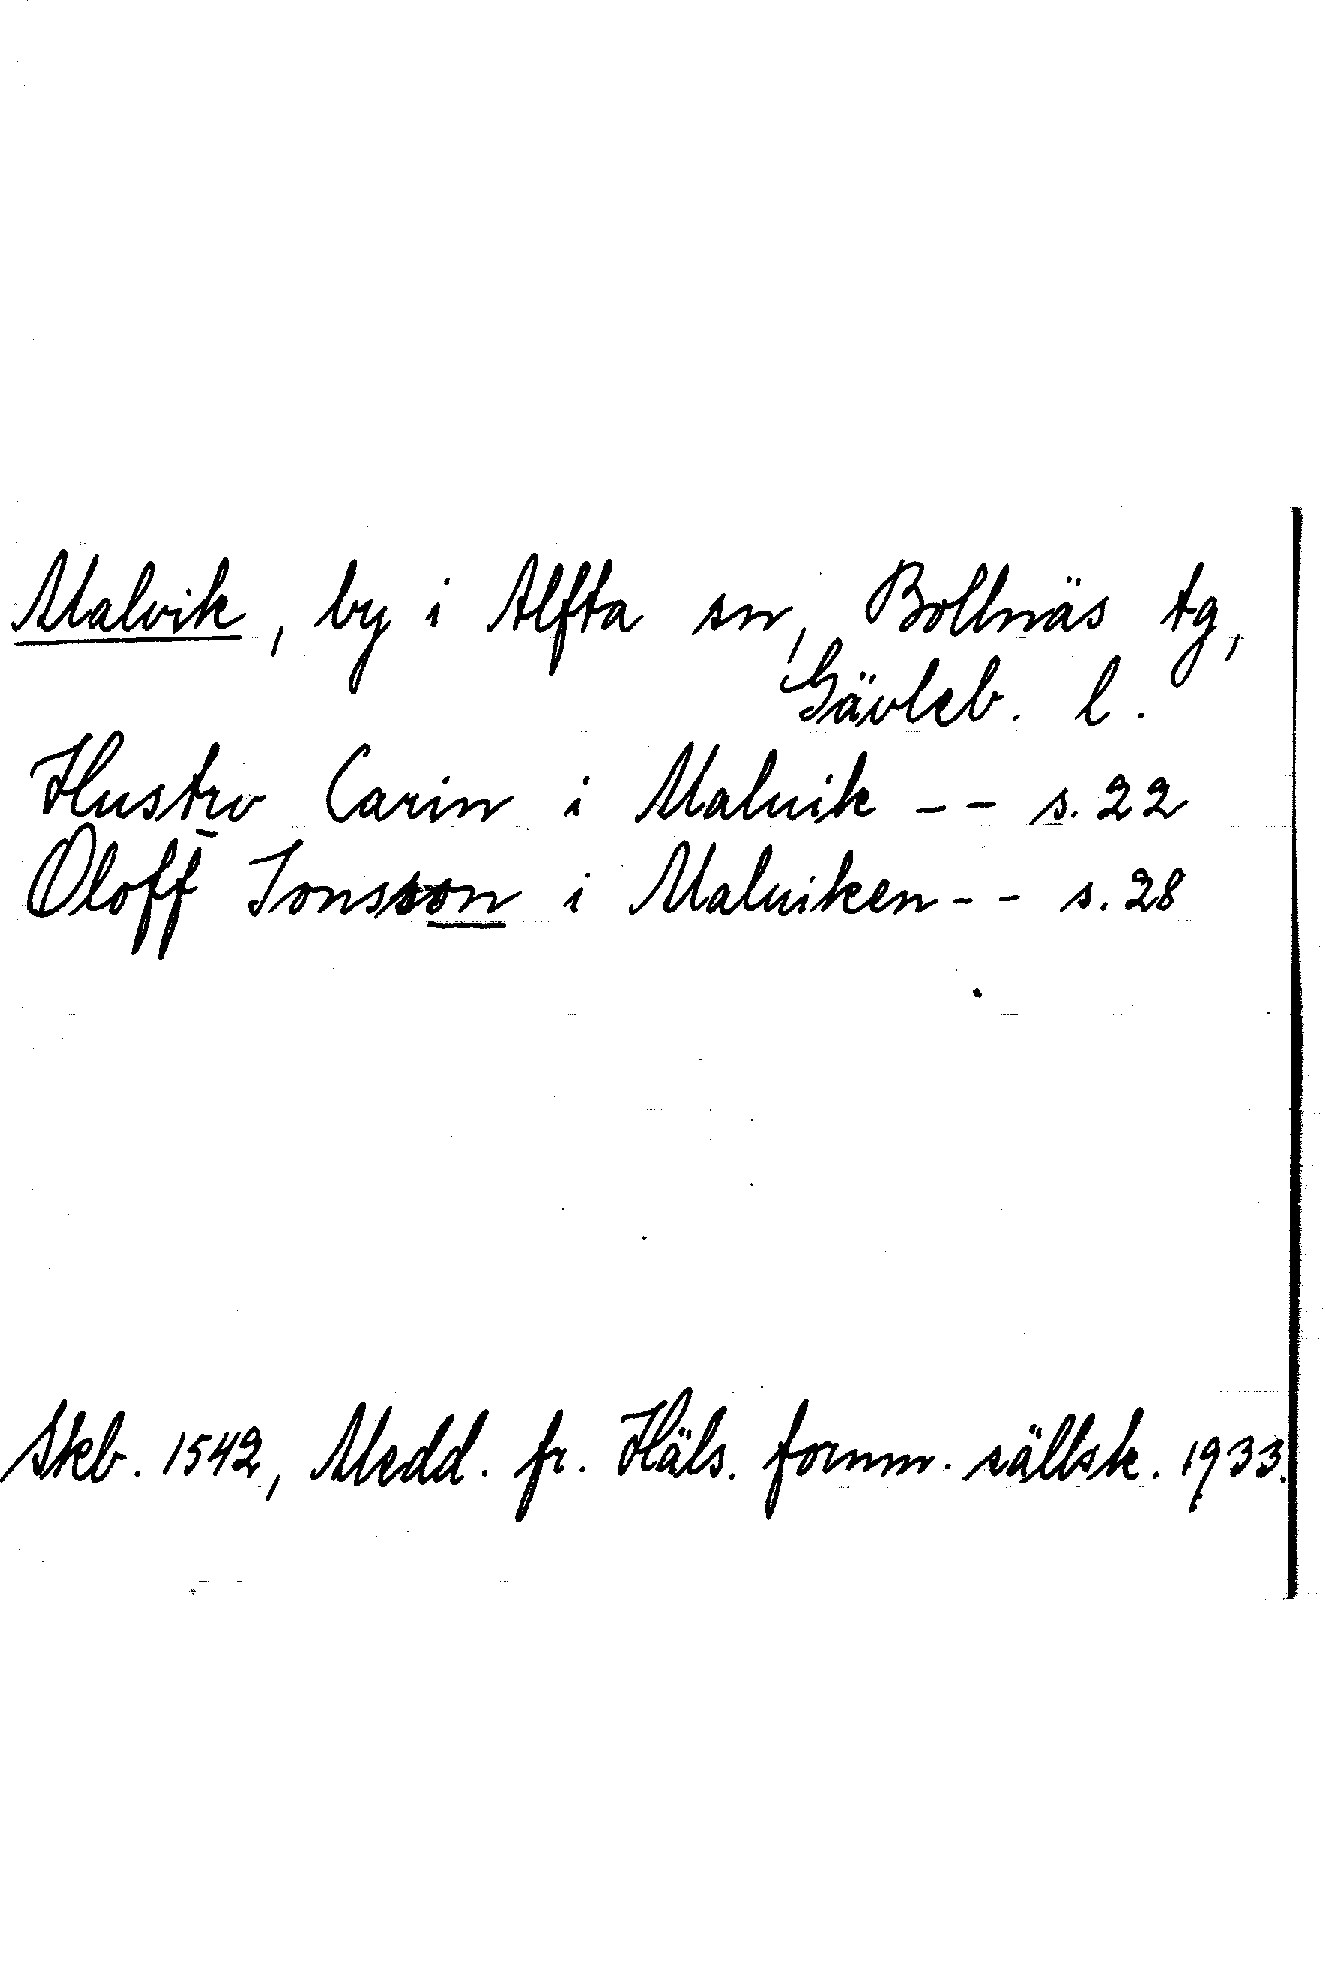 Malvik, by i Alfta sn, Bollnäs tg,
Gävleb. l.
Hustrv Carin i Maluik -- s. 22
Oloff Jonsson i Maluiken -- s. 28
Skb. 1542, Medd. fr. Häls. fornm. sällsk. 1933.